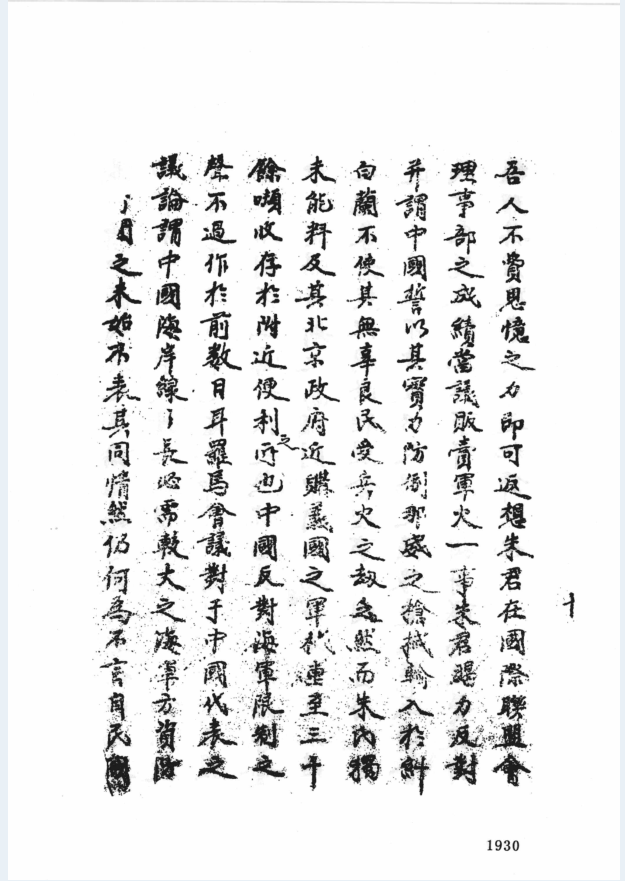 吾人不費思憶之力即可返想朱君在國際聯盟會
理事部之成績當議販賣軍火一事朱君竭力反對
并謂中國誓以其實力防倒那威之槍械輸入於糾
白蘭不使其無辜良民受兵火之劫也然而朱內獨
未能料及其北京政府近購義國之軍械重至三千
餘噸收存於附近便利之所也中國反對海軍限制之
聲不過作於前數日耳羅馬會議對于中國代表之
議論謂中國海岸線之長必需較大之海軍方資防
之未始不表其同情然仍何為不言自民國
十
1930